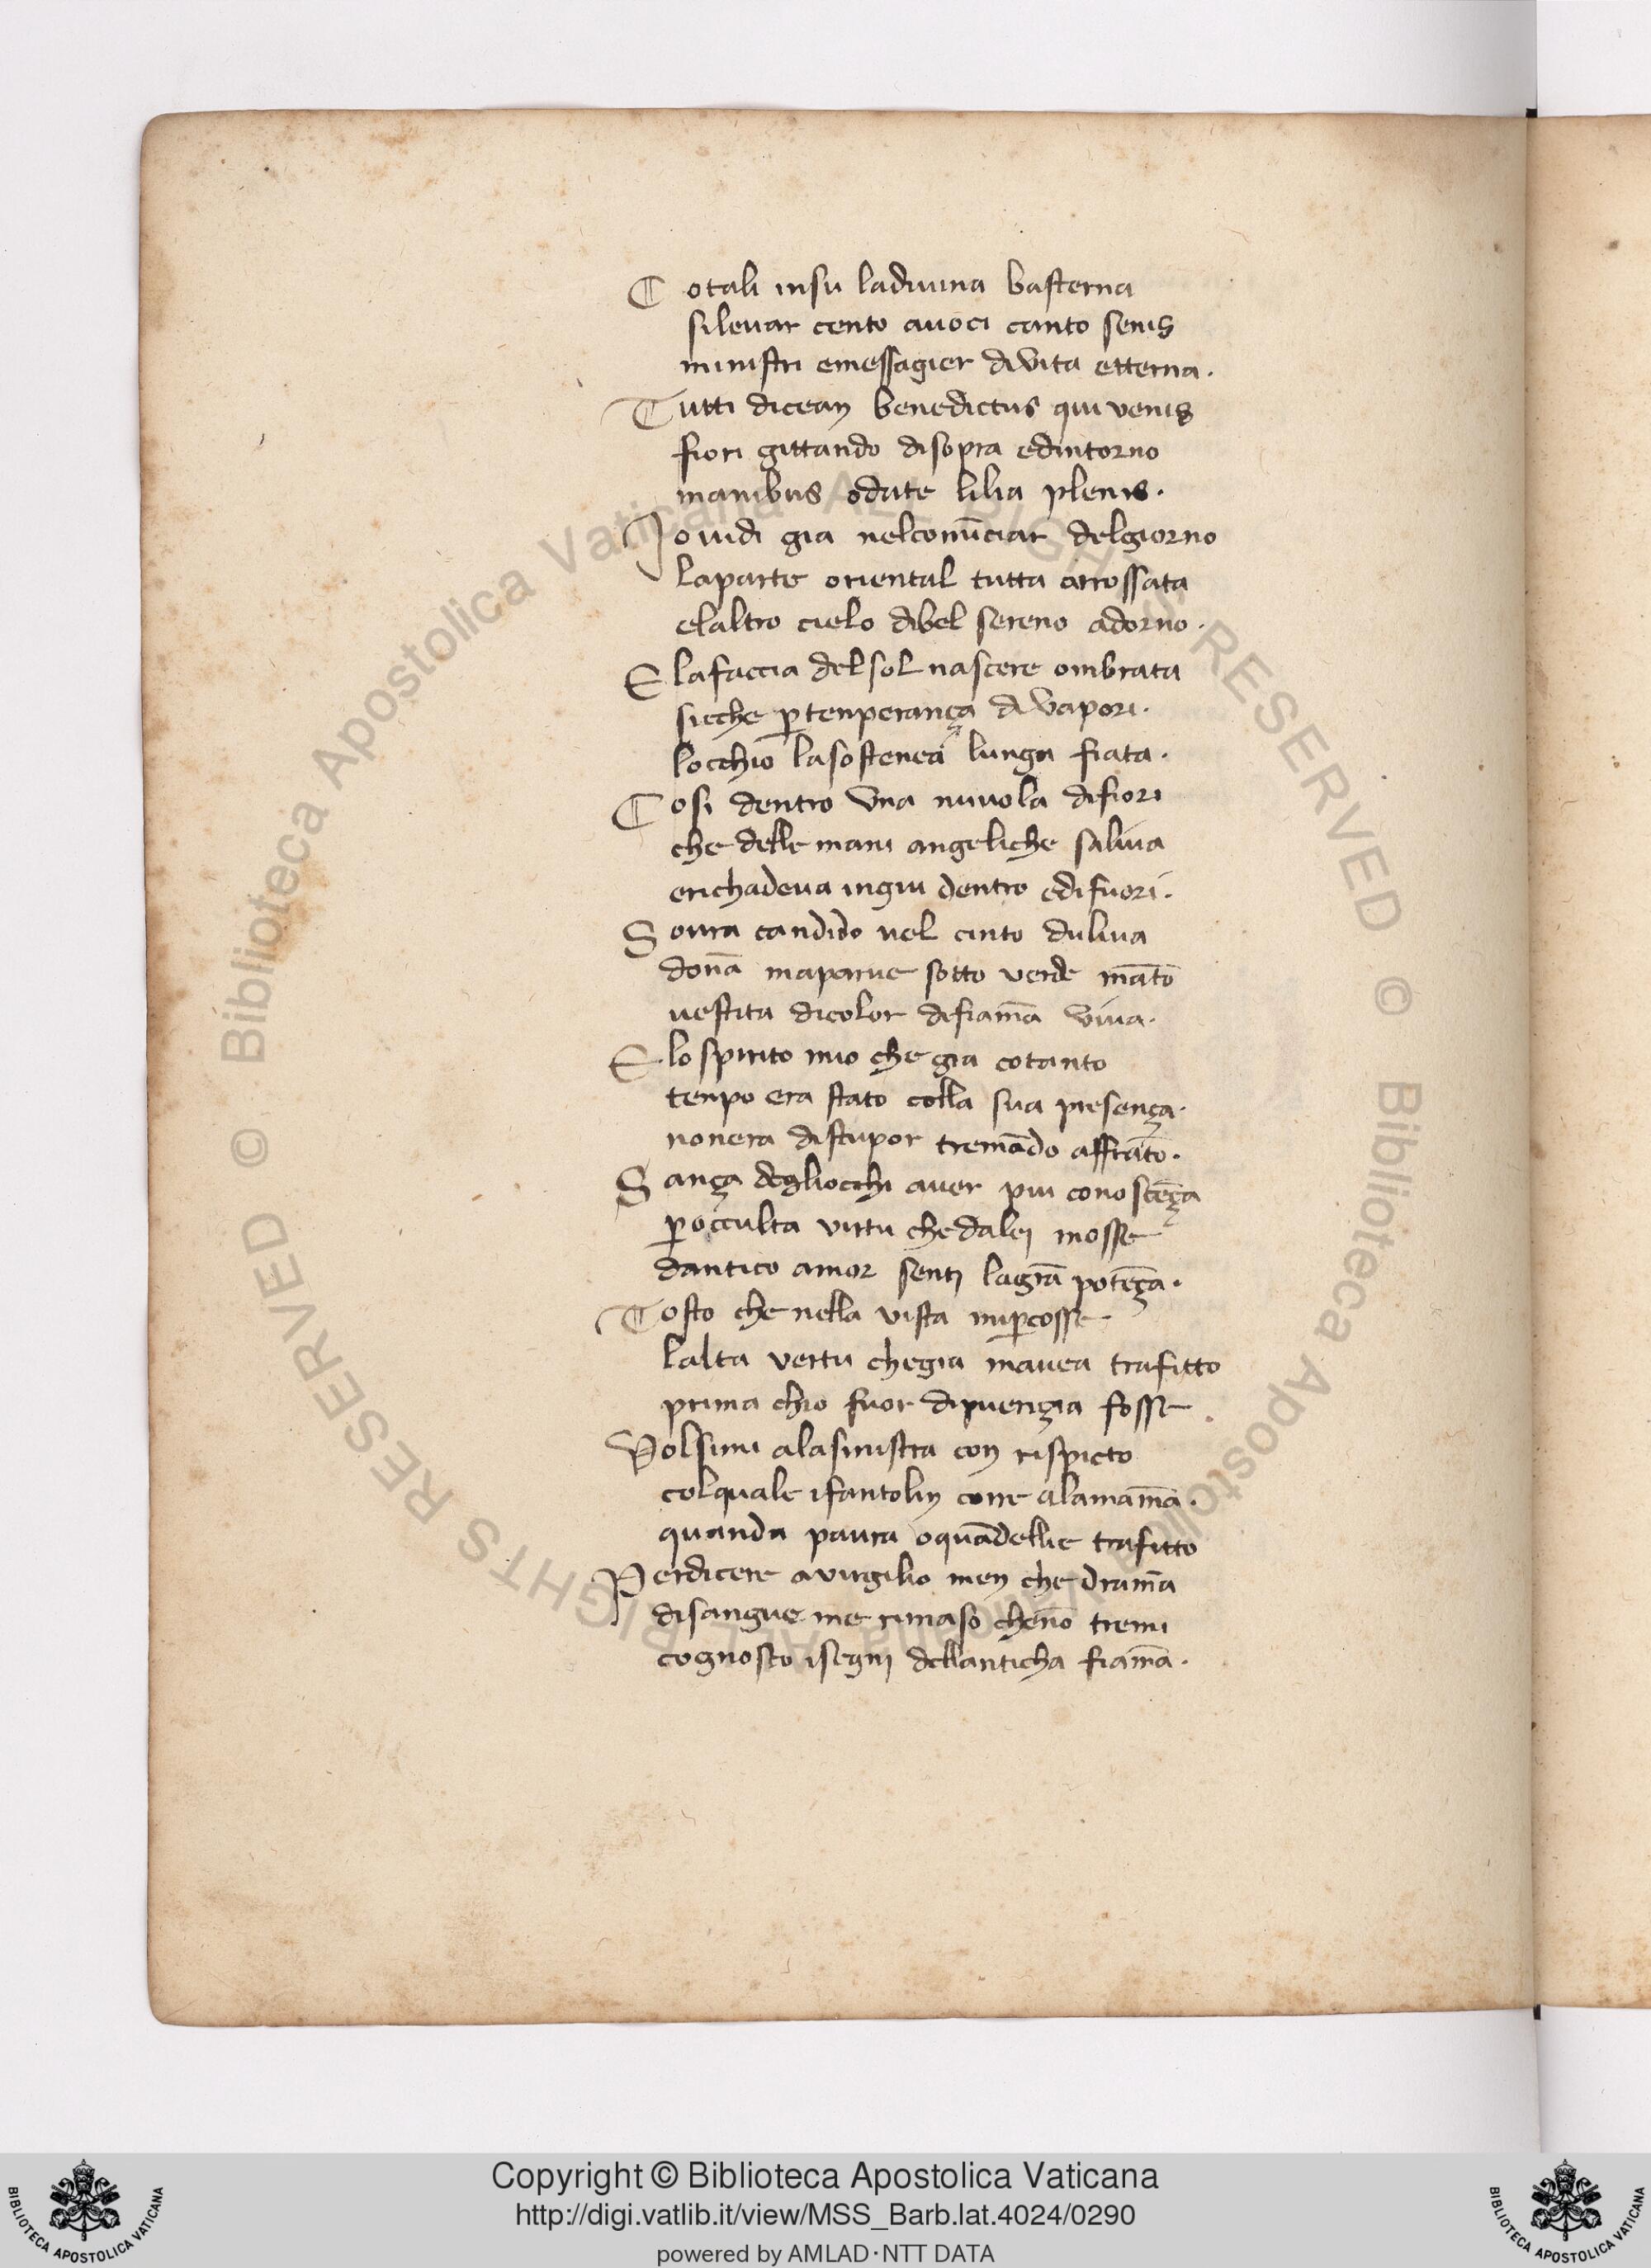 Cotali insu ladiuina basterna
silevar cento avoci canto senis
ministri emessagier divita etterna.
Tutti dicean benedictus qui venis
fiori gittando disopra edintorno
manibus odate lilia plenis.
Io uidi gia nelcomīciar delgiorno
laparte oriental tutta arrossata
elaltro cielo dibel sereno adorno.
E lafaccia delsol nascere ombrata
sicche ꝑtenperança divapori.
locchio lasostenea lunga fiata.
Cosi dentro una nuvola difiori
che delle mani angeliche saliva
erichadeva ingiu dentro edifuori.
Sovra candido vel cinto duliva
donā maparve sotto verde mātō
uestita dicolor difiamā viva.
E lo spirito mio che gia cotanto
tenpo era stato colla sua presença.
nonera distupor tremādo affrāto.
Sança degliocchi aver piu conoscēça
ꝑocculta virtu chedalei mosse
dantico amor senti lagrā potēça.
Tosto che nella vista miꝑcosse
lalta vertu chegia mavea trafitto
prima chio fuor dipuerizia fosse.
Volsimi alasinistra con rispicto
colquale ifantolin corre alamamā.
quanda paura oquādellie trafitto
Perdicere avirgilio men che dramā
disangue me rimaso chenō tremi
cognosco isegni dellanticha fiamā.
© Biblioteca Apostolica Vaticana ALL RIGHTS RESERVED © Biblioteca Apostolica Vaticana ALL RIGHTS RESERVED
Copyright © Biblioteca Apostolica Vaticana
http://digi.vatlib.it/view/MSS_Barb.lat.4024/0290
powered by AMLAD·NTT DATA
BIBLIOTECA APOSTOLICA VATICANA
BIBLIOTECA APOSTOLICA VATICANA